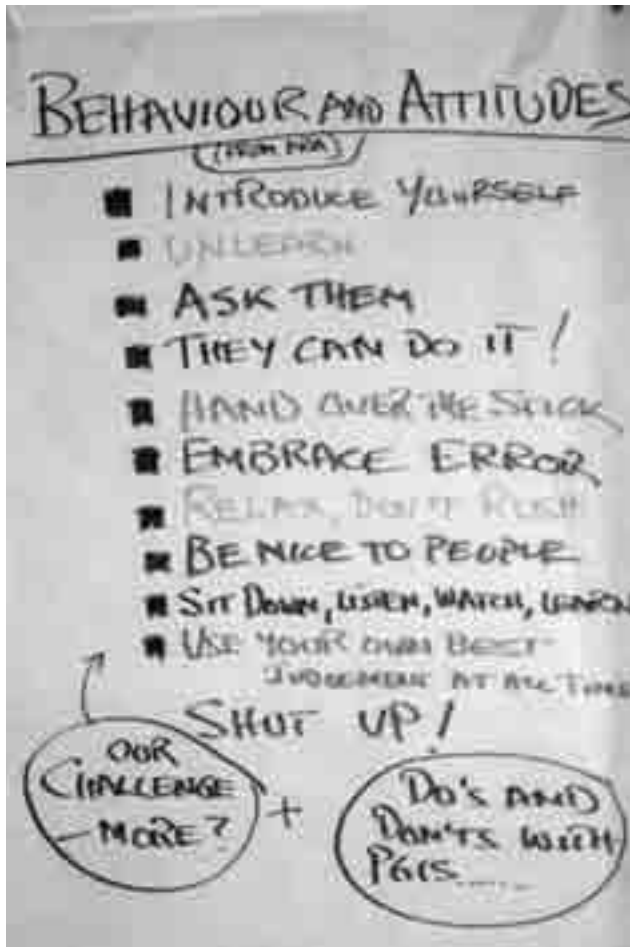 BEHAVIOUR AND ATTITUDES
(FROM PRA)
INTRODUCE YOURSELF
UNLEARN
ASK THEM
THEY CAN DO IT!
HAND OVER THE STICK
EMBRACE ERROR
RELAX, DON'T RUSH
BE NICE TO PEOPLE
SIT DOWN, LISTEN, WATCH, LEARN
USE YOUR OWN BEST
JUDGEMENT AT ALL TIMES
SHUT UP!
OUR
CHALLENGE
- MORE?
+
DO'S AND
DON'TS WITH
PGIS.....